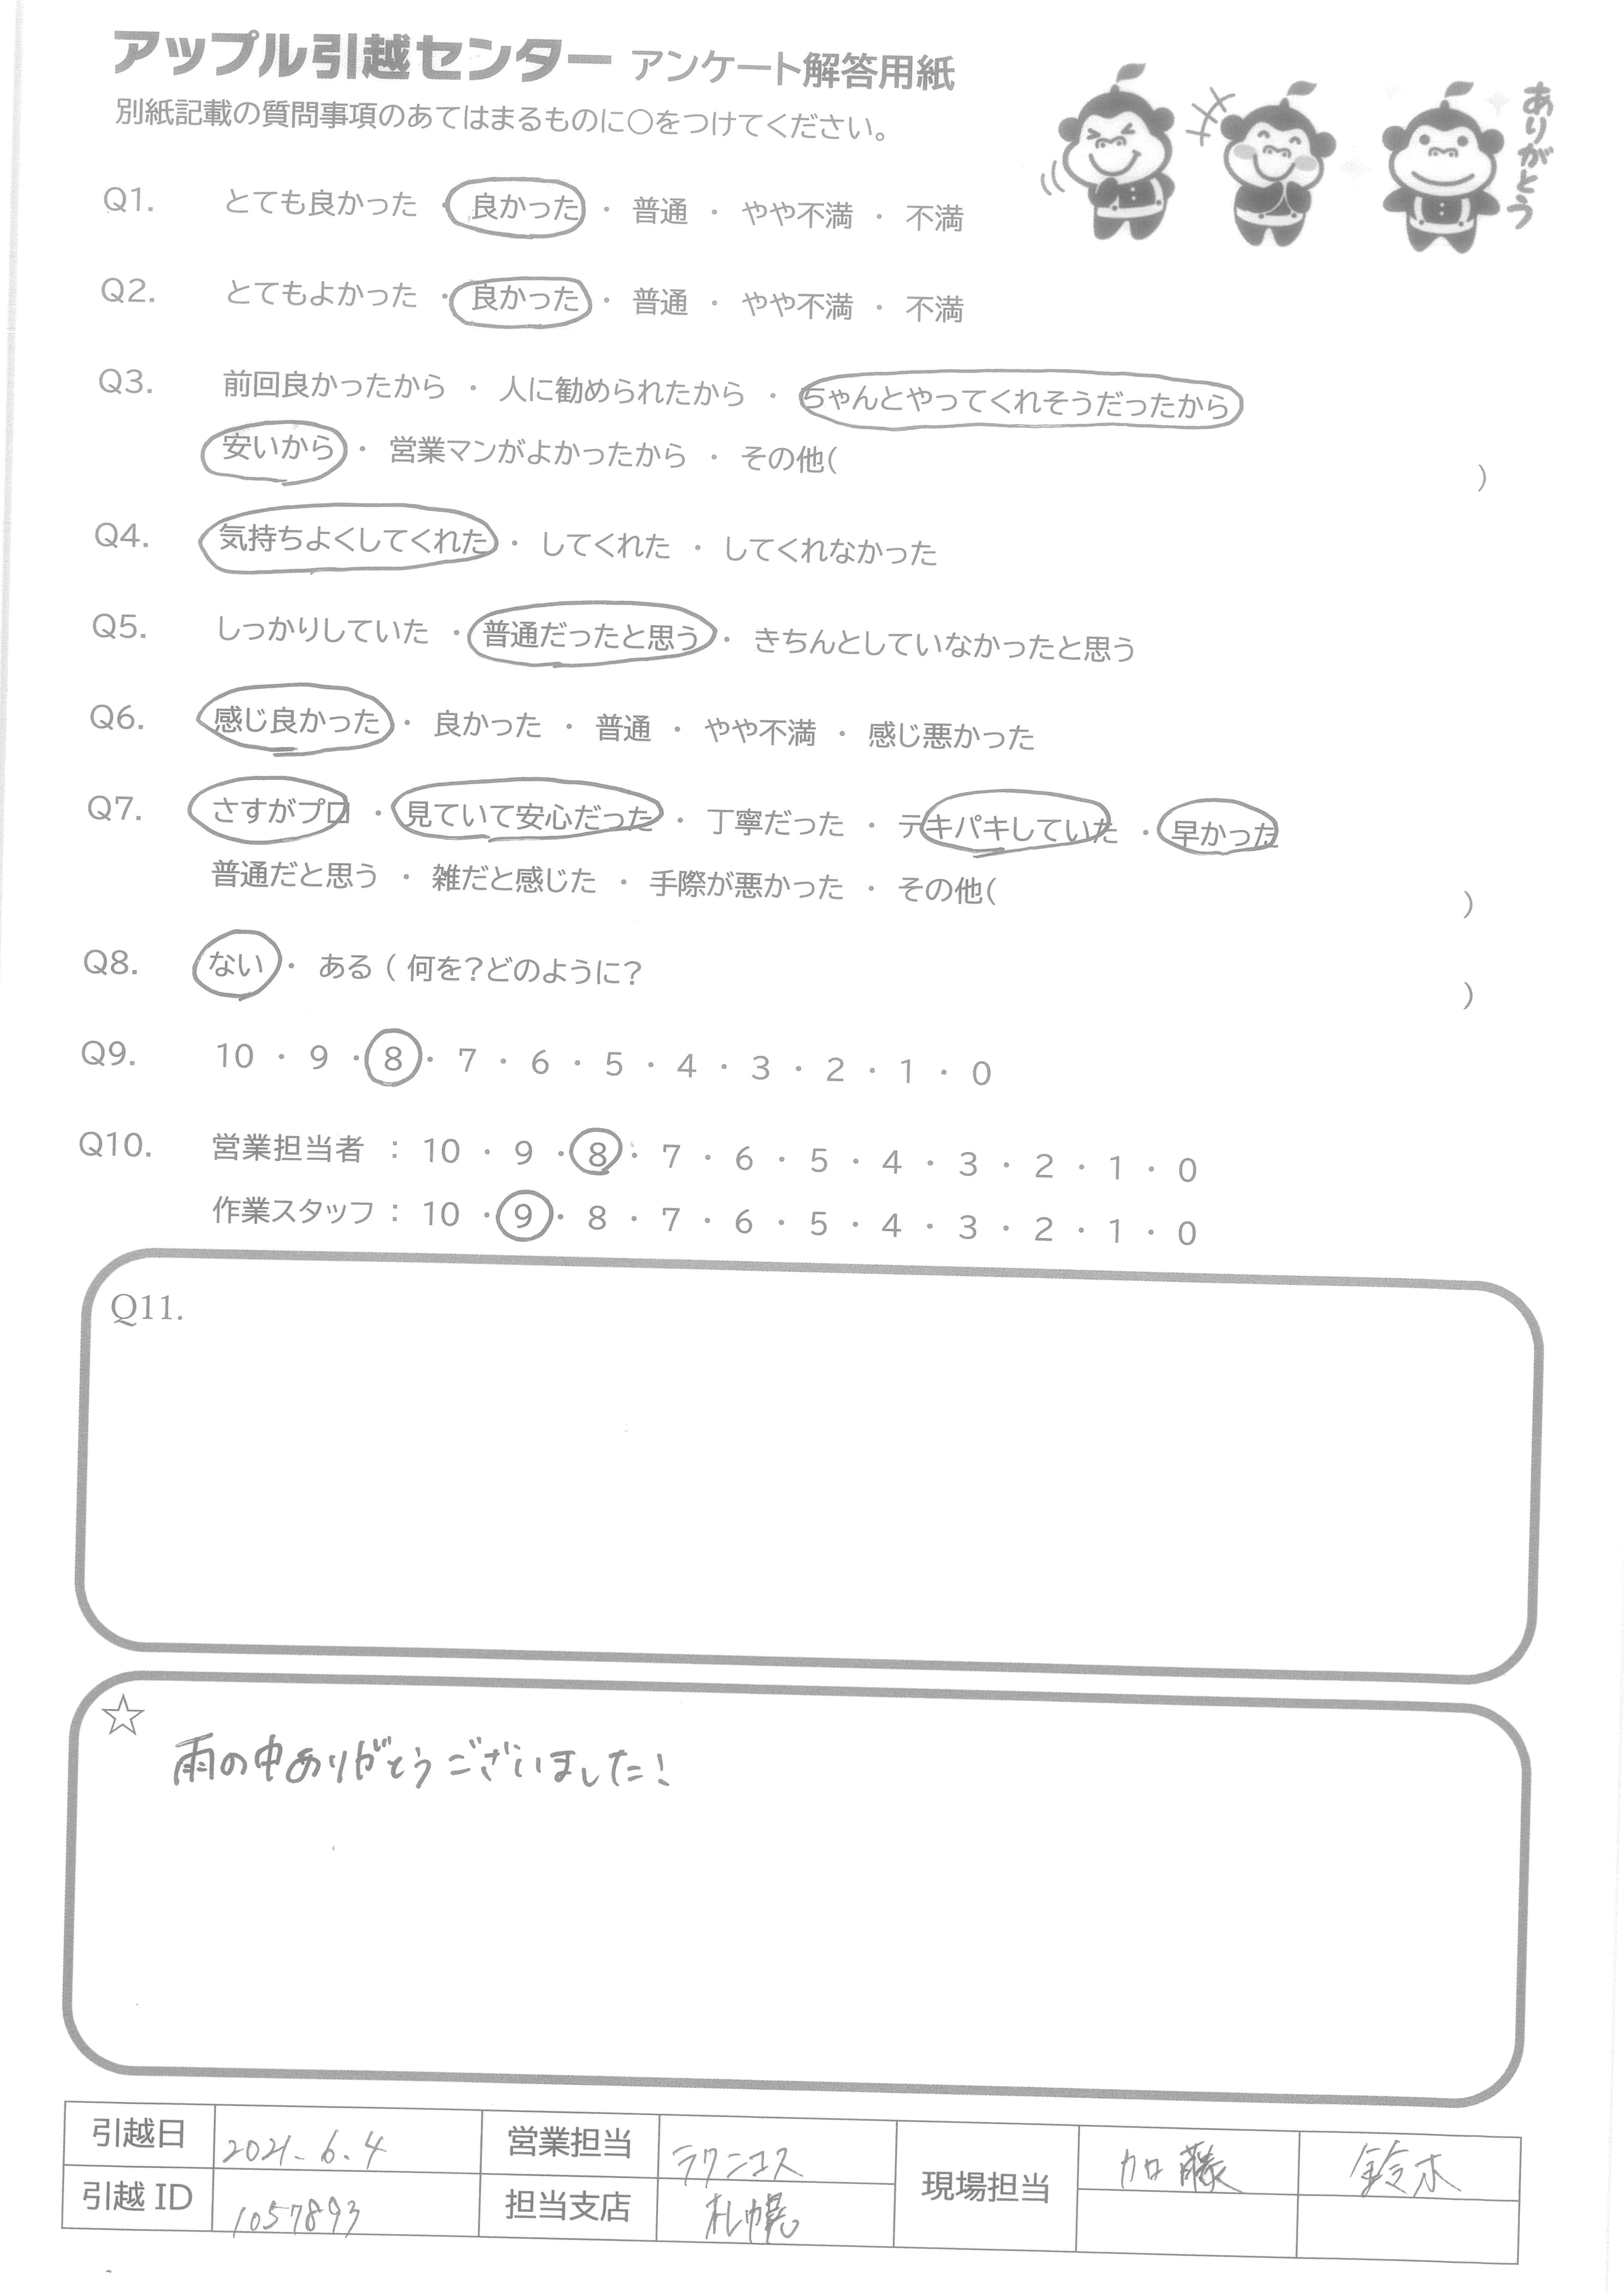 アップル引越センター アンケート解答用紙
別紙記載の質問事項のあてはまるものに○をつけてください。
ありがとう
Q1. とても良かった ・ 良かった ・ 普通 ・ やや不満 ・ 不満
Q2. とてもよかった ・ 良かった ・ 普通 ・ やや不満 ・ 不満
Q3. 前回良かったから ・ 人に勧められたから ・ ちゃんとやってくれそうだったから
安いから ・ 営業マンがよかったから ・ その他( )
Q4. 気持ちよくしてくれた ・ してくれた ・ してくれなかった
Q5. しっかりしていた ・ 普通だったと思う ・ きちんとしていなかったと思う
Q6. 感じ良かった ・ 良かった ・ 普通 ・ やや不満 ・ 感じ悪かった
Q7. さすがプロ ・ 見ていて安心だった ・ 丁寧だった ・ テキパキしていた ・ 早かった
普通だと思う ・ 雑だと感じた ・ 手際が悪かった ・ その他( )
Q8. ない ・ ある ( 何を?どのように? )
Q9. 10 ・ 9 ・ 8 ・ 7 ・ 6 ・ 5 ・ 4 ・ 3 ・ 2 ・ 1 ・ 0
Q10. 営業担当者 : 10 ・ 9 ・ 8 ・ 7 ・ 6 ・ 5 ・ 4 ・ 3 ・ 2 ・ 1 ・ 0
作業スタッフ : 10 ・ 9 ・ 8 ・ 7 ・ 6 ・ 5 ・ 4 ・ 3 ・ 2 ・ 1 ・ 0
Q11.
☆
雨の中ありがとうございました!
引越日 2021.6.4 営業担当 ラクニコス 現場担当 加藤 鈴木
引越 ID 1057893 担当支店 札幌